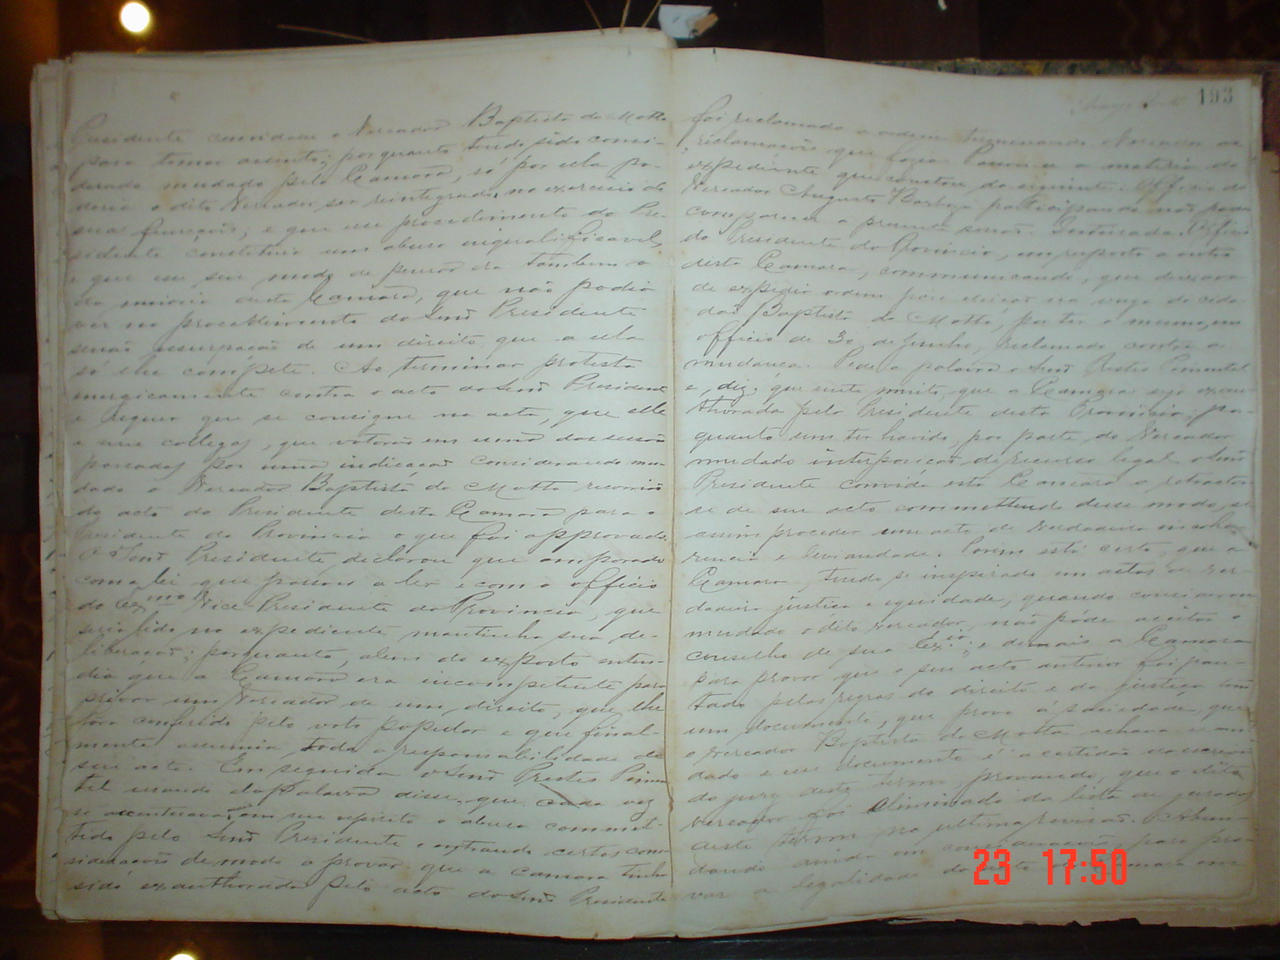 Presidente convidasse o Vereador Baptista da Motta
para tomar assento; porquanto tendo sido consi-
derado mudado pela Camara, só por ella po-
deria o dito Vereador ser reintegrado no exercicio de
suas funcções, e que esse procedimento do Pre-
sidente constituia um abuso inqualificavel,
e que esse seu modo de pensar era tambem o
da maioria desta Camara, que não podia
ver no procedimento do Senr Presidente
senão usurpação de um direito que a ella
só lhe compete. Ao terminar protesta
energicamente contra o acto do Senr Presidente
e requer que se consigne na acta, que elle
e seus collegas, que votarão em uma das sessões
passadas por uma indicação considerando mu-
dado o Vereador Baptista da Motta recorrião
do acto do Presidente desta Camara para o
Presidente da Provincia o que foi approvado.
O Senr Presidente declarou que amparado
com a lei que passou a ler e com o officio
do Exmo Vice Presidente da Provincia, que
seria lido no expediente mantinha sua de-
liberação; porquanto, alem do exposto enten-
dia que a Camara era incompetente para
privar um Vereador de um direito, que lhe
fora conferido pelo voto popular e que final-
mente assumia toda a responsabilidade de
seu acto. Em seguida o Senr Prestes Pimen-
tel usando da palavra disse, que cada vez
se accentuava em seu espirito o abuso commet-
tido pelo Senr Presidente e adduzindo certas con-
siderações de modo a provar que a Camara tinha
sido exauthorada pelo acto do Senr Presidente
193
foi reclamado a ordem
reclamações que a materia do
expediente que constou do seguinte. Officio do
Vereador Augusto Barbosa participando não poder
comparecer a presente sessão. Inteirada. Officio
do Presidente da Provincia, em resposta a outro
desta Camara, communicando, que deixava
de expedir ordem para eleição na vaga do cida-
dão Baptista da Motta, por ter o mesmo, em
officio de 30 de Junho, reclamado contra a
mudança. Pede a palavra o Senr Prestes Pimentel
e diz, que sente muito, que a Camara seja exau-
thorada pelo Presidente desta Provincia; por-
quanto sem ter havido, por parte do Vereador
mudado interposição de recurso legal o Senr
Presidente convida esta Camara a retractar
se de seu acto commettendo desse modo, se
assim proceder um acto de verdadeira incohe-
rencia e leviandade. Porem está certo, que a
Camara, tendo se inspirado em actos de ver-
dadeira justiça e equidade, quando considerou
mudado o dito vereador, não póde aceitar o
conselho de sua Exia; e demais a Camara
para provar que o seu acto anterior foi pau-
tado pelas regras do direito e da justiça tem
um documento, que prova á sociedade, que
o vereador Baptista da Motta achava se mu-
dado e esse documento é a certidão do escrivão
do jury deste termo provando, que o dito
vereador foi eliminado da lista de jurados
deste termo na ultima revisão. Abun-
dando ainda em considerações para pro-
var a legalidade do acto da Camara em
23 17:50